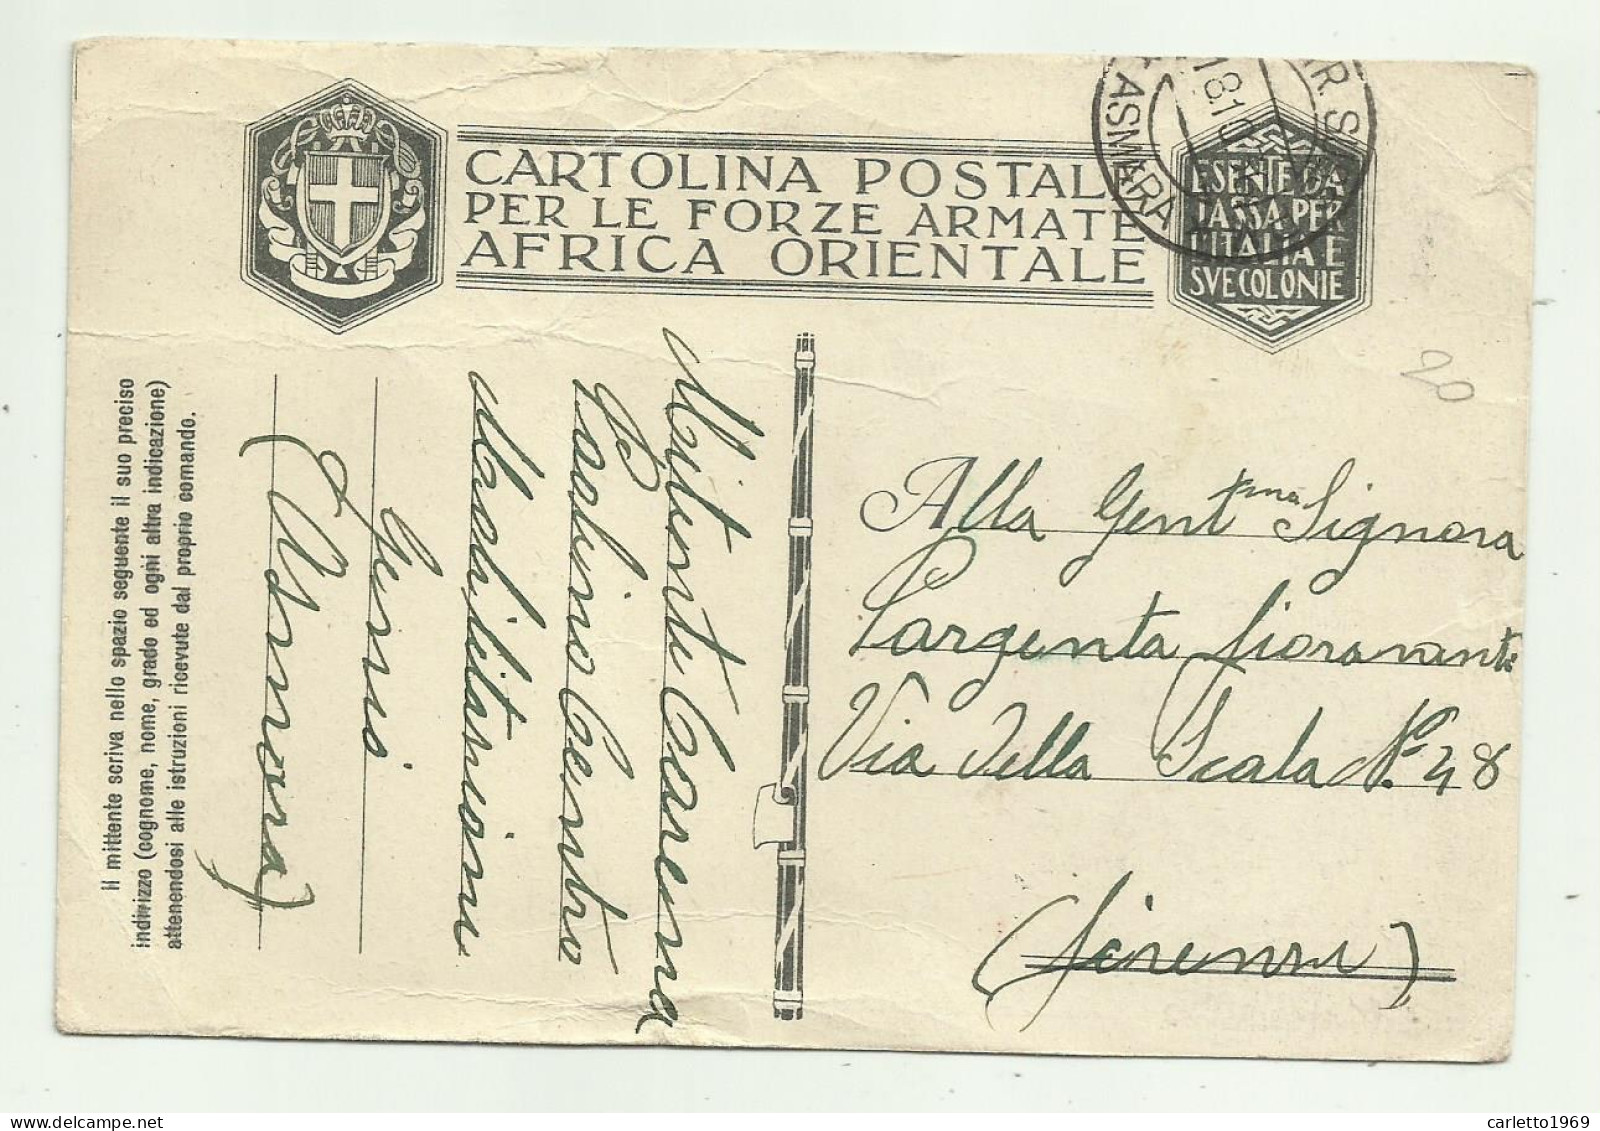 CARTOLINA POSTALE
PER LE FORZE ARMATE
AFRICA ORIENTALE
ASMARA
ESENTE DA
TASSA PER
L'ITALIA E
SVE COLONIE
20
Alla Gent.ma Signora
Sargenta Fioravanti
Via Della Scala N° 48
(Firenze)
Mittente
Centro
Genio
(Asmara)
Il mittente scriva nello spazio seguente il suo preciso
indirizzo (cognome, nome, grado ed ogni altra indicazione)
attenendosi alle istruzioni ricevute dal proprio comando.
carletto1969